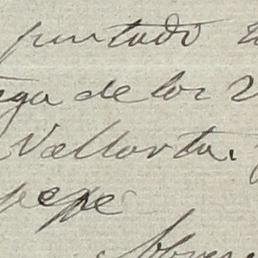 puntado
ega de los
Vallarta.
pepe